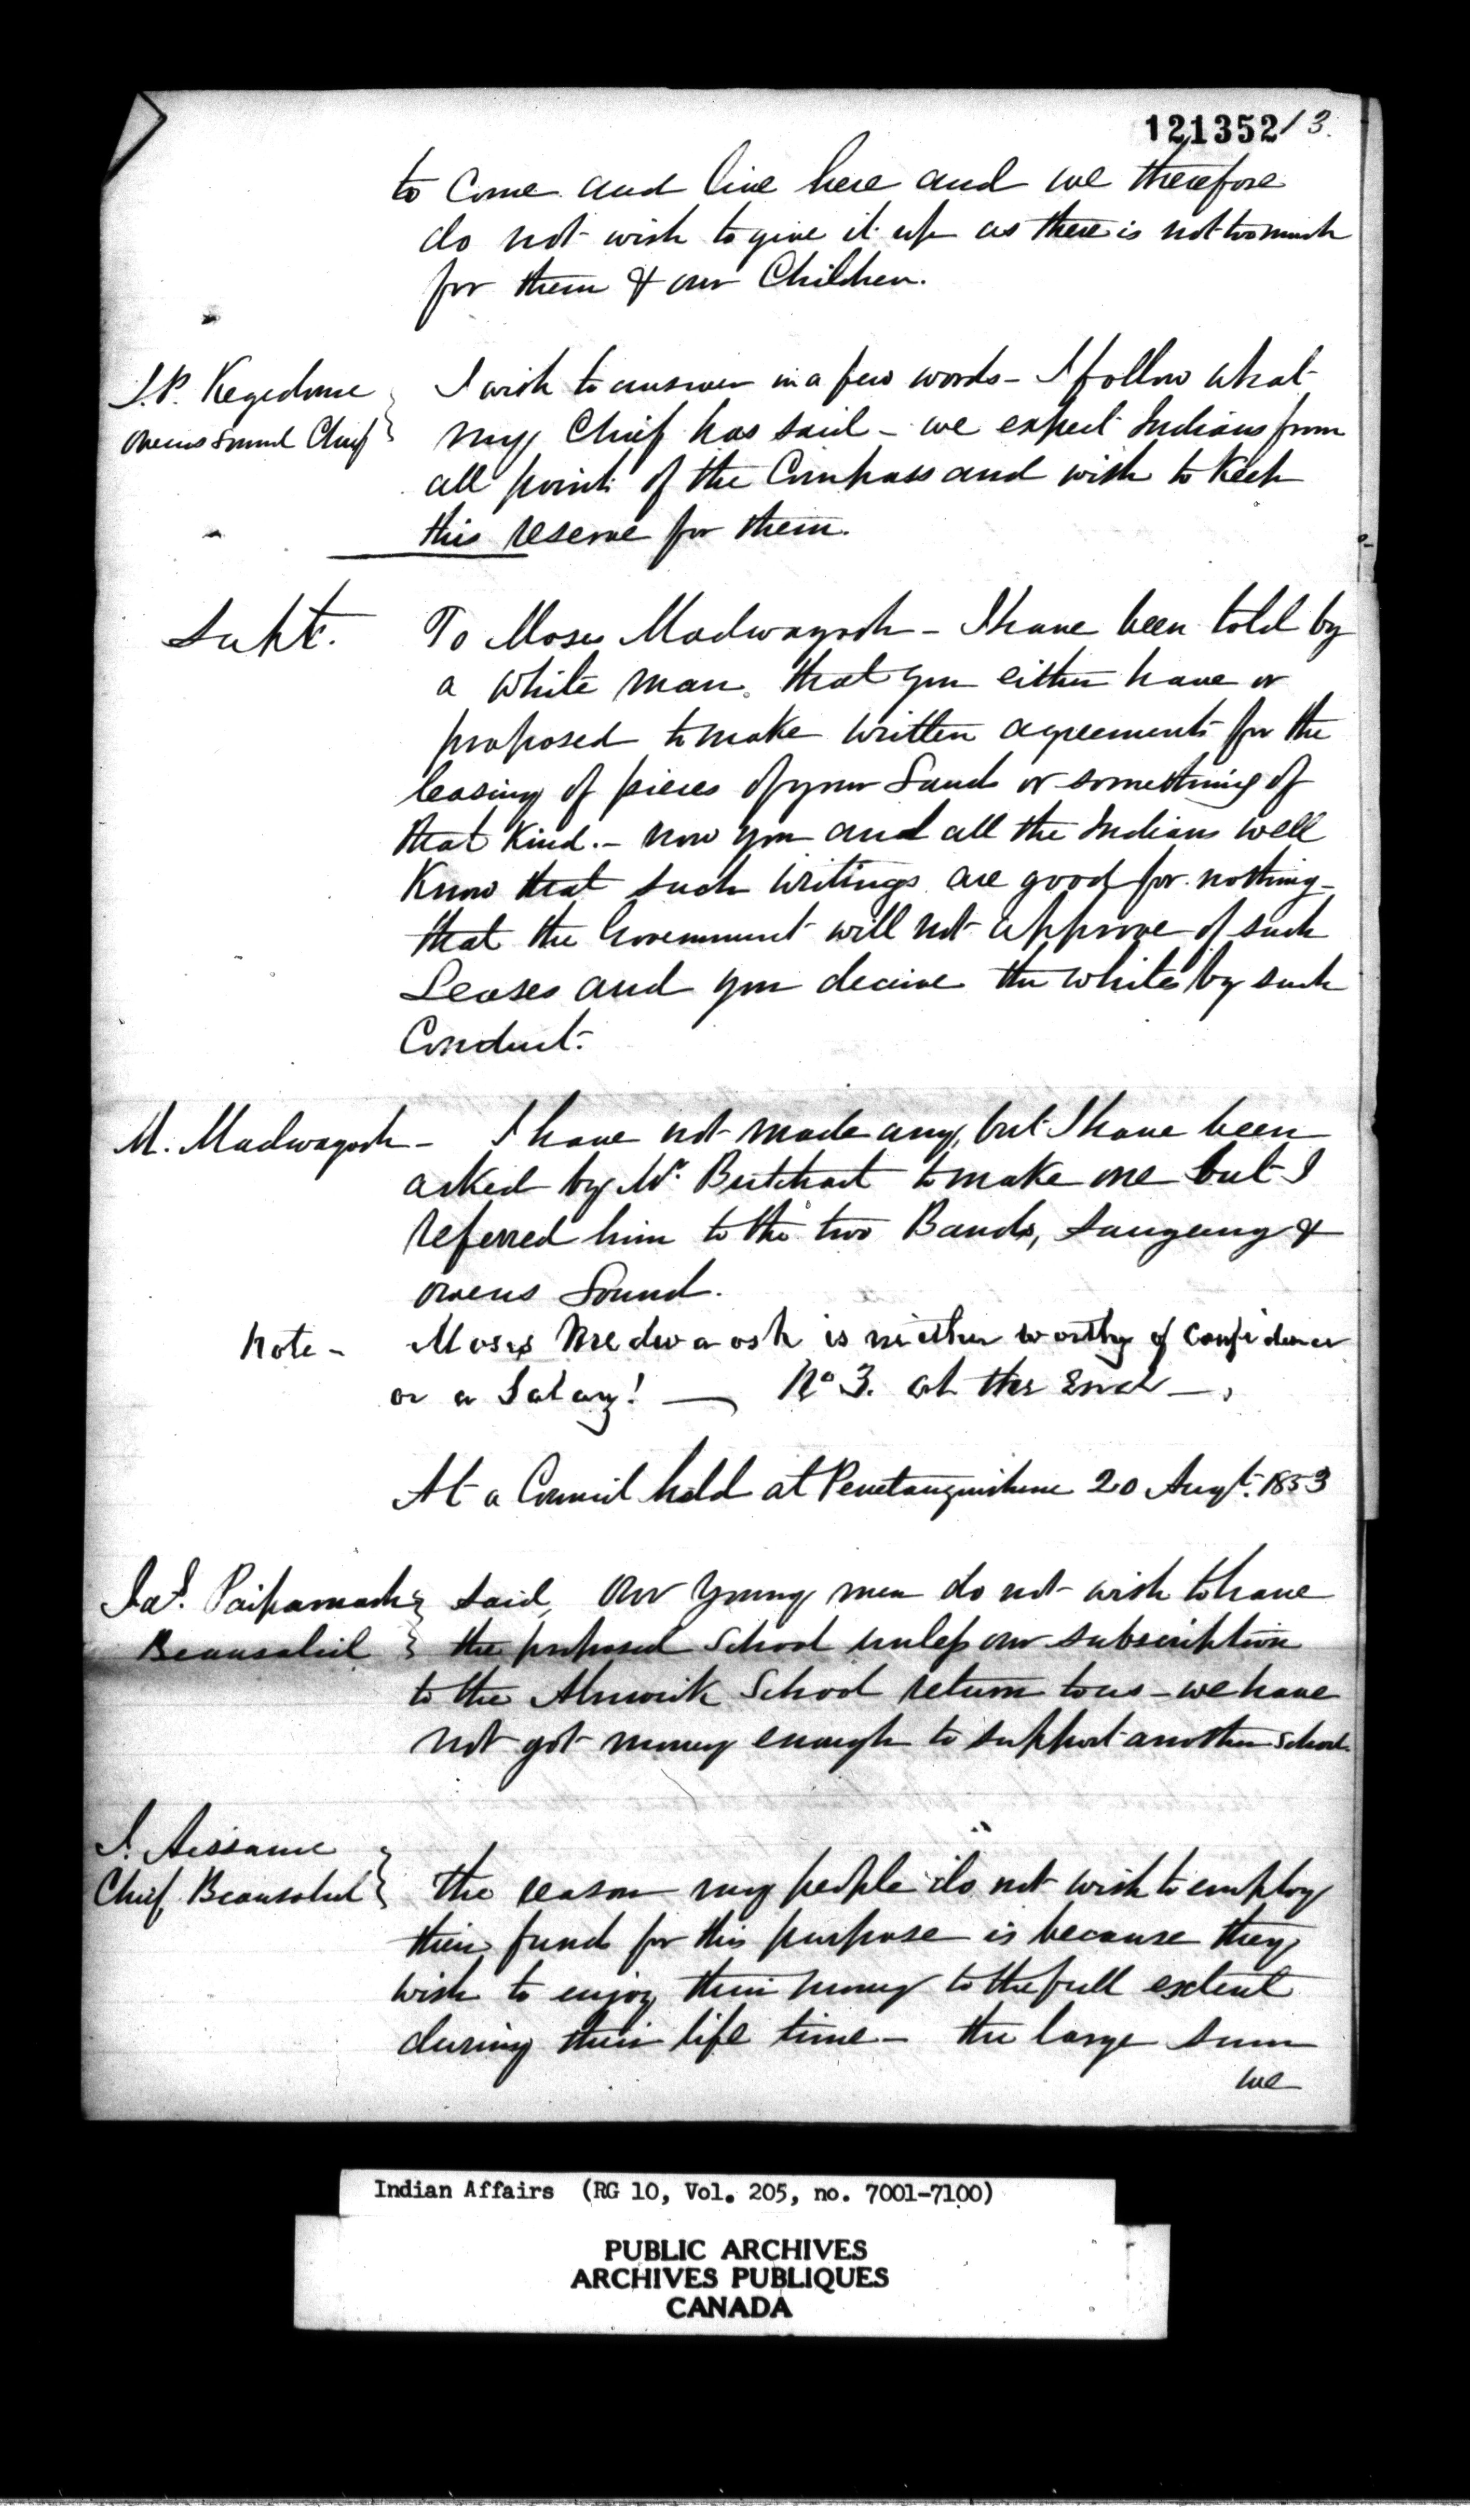 121352 13.
to Come and live here and we therefore
do not wish to give it up as there is not too much
for them & our Children.
J.P. Kegedonce } I wish to answer in a few words - I follow what
Owens Sound Chief } my Chief has said - we expect Indians from
all points of the Compass and wish to Keep
this reserve for them.
Supt. To Moses Madwayosh - I have been told by
a white man that you either have or
proposed to make written agreements for the
leasing of pieces of your Land or something of
that Kind. - now you and all the Indians well
Know that such writings are good for nothing -
that the Government will not approve of such
Leases and you deceive the whites by such
Conduct.
M. Madwayosh - I have not made any, but I have been
asked by Mr. Butchart to make one but I
referred him to the two Bands, Saugeeng &
Owens Sound.
Note - Moses Medwaosh is neither worthy of Confidence
or a Salary! — No 3. at the End —
At a Council held at Penetanguishene 20 Augt. 1853
Paipamash } said, Our Young men do not wish to have
Beausoliel } the proposed School unless our subscription
to the Alnwick School return to us - we have
not got money enough to support another School
J. Aissance }
Chief Beausoleil } the reason my people do not wish to employ
their funds for this purpose is because they
wish to enjoy their money to the full extent
during their life time - the large sum
we
Indian Affairs (RG 10, Vol. 205, no. 7001-7100)
PUBLIC ARCHIVES
ARCHIVES PUBLIQUES
CANADA